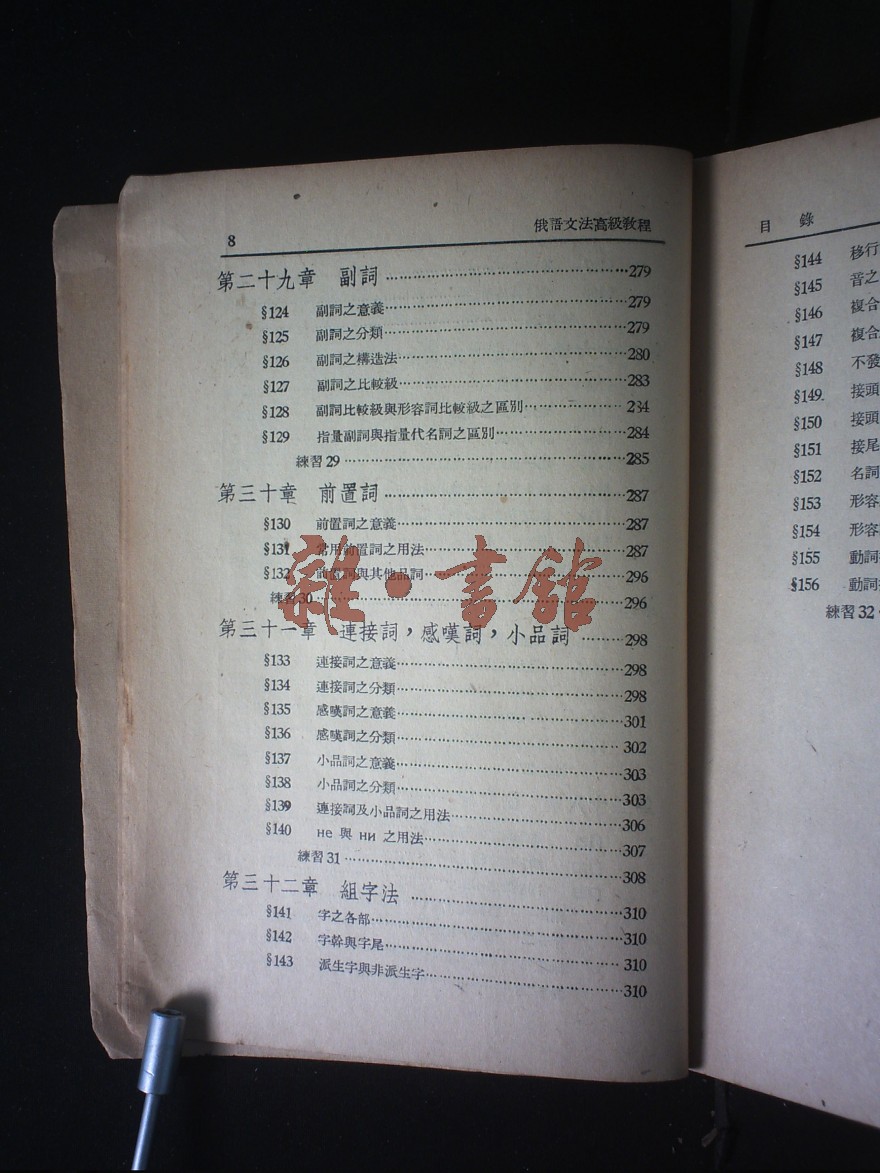 8 俄語文法高級教程
第二十九章 副詞 279
§124 副詞之意義 279
§125 副詞之分類 279
§126 副詞之構造法 280
§127 副詞之比較級 283
§128 副詞比較級與形容詞比較級之區別 284
§129 指量副詞與指量代名詞之區別 284
練習29 285
第三十章 前置詞 287
§130 前置詞之意義 287
§131 常用前置詞之用法 287
§132 前置詞與其他品詞 296
練習30 296
雜·書館
第三十一章 連接詞，感嘆詞，小品詞 298
§133 連接詞之意義 298
§134 連接詞之分類 298
§135 感嘆詞之意義 301
§136 感嘆詞之分類 302
§137 小品詞之意義 303
§138 小品詞之分類 303
§139 連接詞及小品詞之用法 306
§140 не 與 ни 之用法 307
練習31 308
第三十二章 組字法 310
§141 字之各部 310
§142 字幹與字尾 310
§143 派生字與非派生字 310
目 錄
§144 移行
§145 音之
§146 複合
§147 複合
§148 不發
§149 接頭
§150 接頭
§151 接尾
§152 名詞
§153 形容
§154 形容
§155 動詞
§156 動詞
練習32